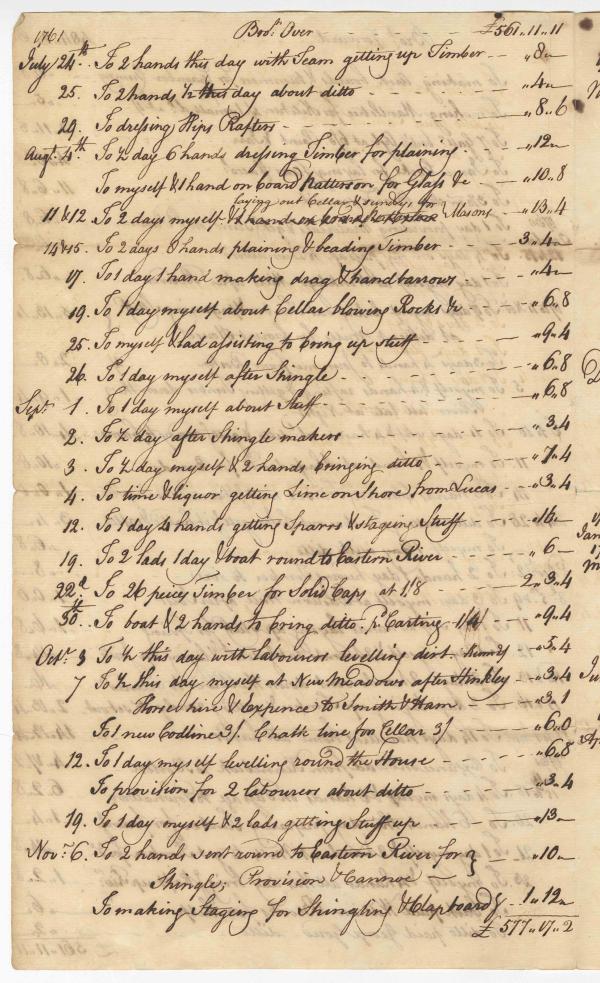 1761 Brot. Over £561..11..11
July 24th. To 2 hands this day with Team getting up Timber - - "8"-
25. To 2 hands ½ this day about ditto - - - "4"-
29. To dressing Hips Rafters - - - "8"6
Augt. 4th. To ½ day 6 hands dressing Timber for plaining. - - "12"-
To myself & 1 hand on board Patterson for Glass &c - - "10"8
laying out Cellar & sundrys for
11 & 12 To 2 days myself & 1 hand on board Patterson } Masons - "13"4
14 & 15. To 2 days 8 hands plaining & beading Timber - - - 3"4"-
17. To 1 day 1 hand making drag & handbarrows - - - "4"-
19. To 1 day myself about Cellar blowing Rocks &c - - - "6"8
25. To myself & lad assisting to bring up stuff - - - "9"4
26. To 1 day myself after Shingle - - - "6"8
Sept. 1. To 1 day myself about Stuff - - - "6"8
2. To ½ day after Shingle makers - - - "3"4
3. To ½ day myself & 2 hands bringing ditto - - - "7"4
4. To time & liquor getting Lime on Shore from Lucas - - - "3"4
12. To 1 day 4 hands getting Sparrs & stageing Stuff - - - "16"-
19. To 2 lads 1 day & boat round to Eastern River - - - "6-
22d. To 26 peices Timber for Solid Caps at 1/8 - - - 2"3"4
30th. To boat & 2 hands to bring ditto. Pr. Carting 1/4 - - "9"4
Octr. 3 To ½ this day with labourers levelling dirt. - "5"4
7 To ½ this day myself at New Meadows after Hinkley - - "3"4
Horse hire & Expence to Smith & Ham - - - "3"1
To 1 new Codline 3/. Chalk line for Cellar 3/ - - - "6"0
12. To 1 day myself levelling round the House - - - "6"8
To provision for 2 labourers about ditto - - - "3"4
19. To 1 day myself & 2 lads getting Stuff up - - - "13-
Novr. 6. To 2 hands sent round to Eastern River for } - - "10"-
Shingle; Provision & Cannoe -
To making Staging for Shingling & Clapboardg } 1"12"-
£577"17"2